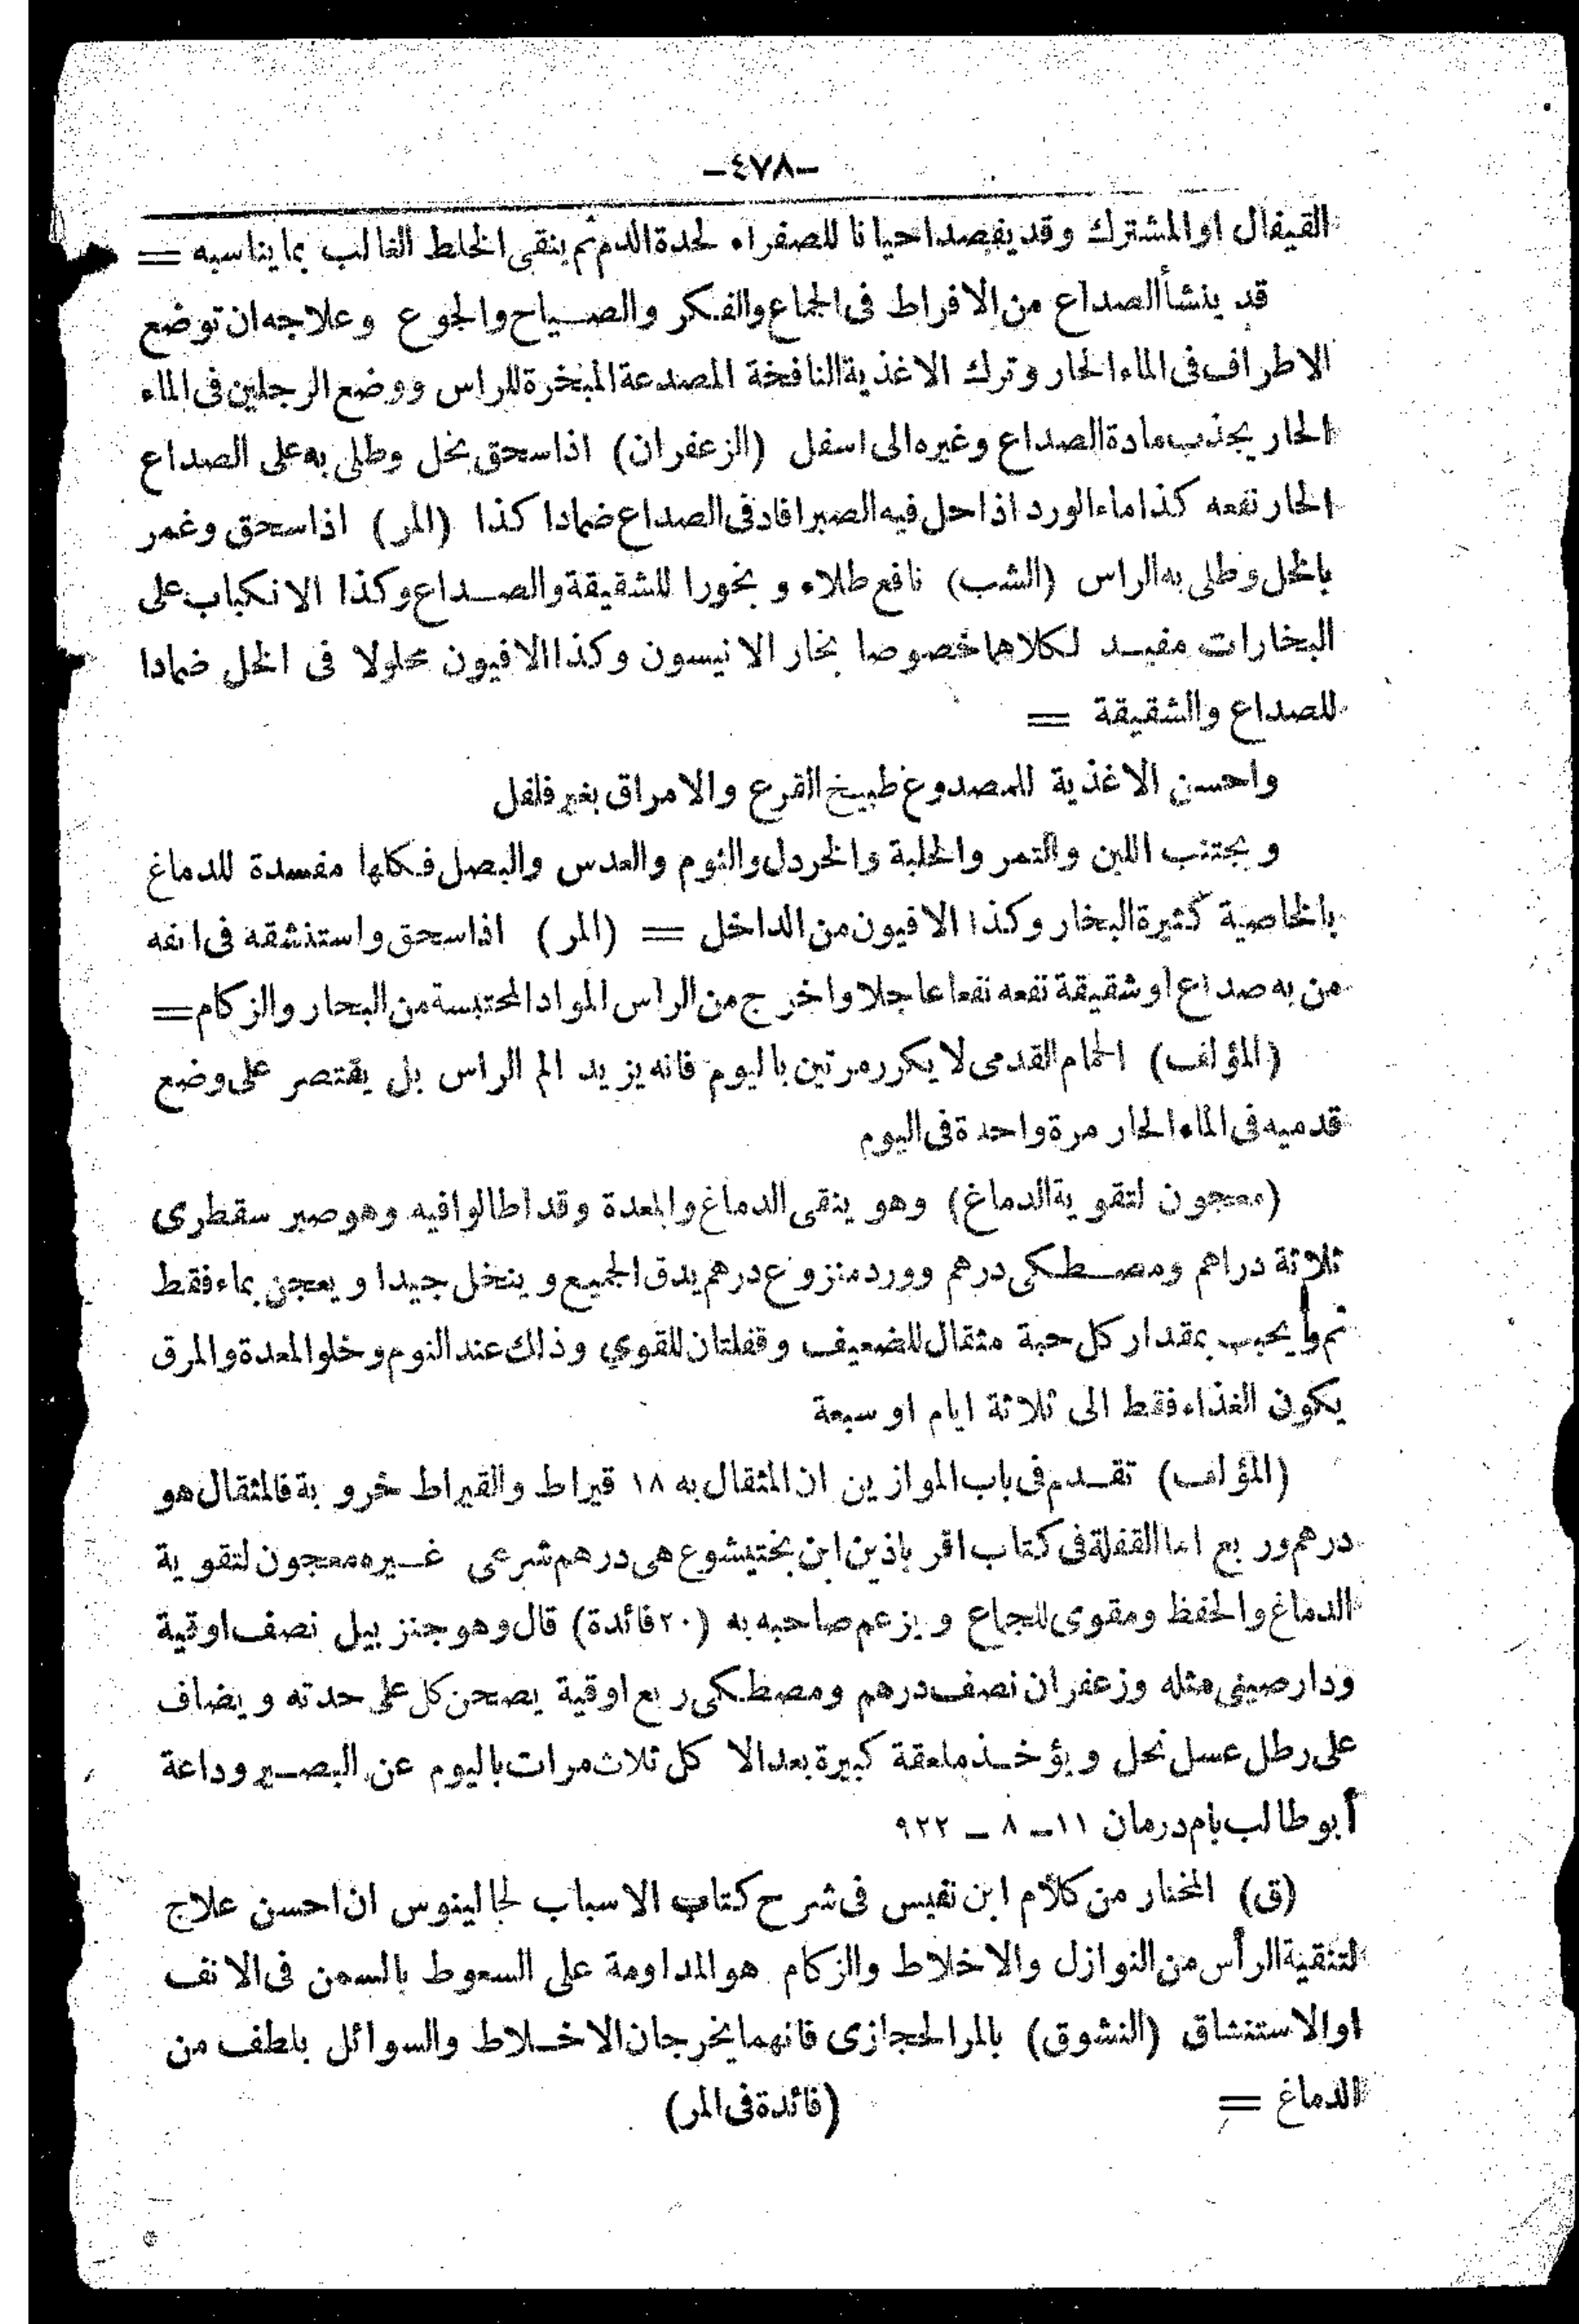 -٤٧٨-
القيفال او المشترك وقد يفصد احيانا للصفراء لحدة الدم ثم ينقى الخلط الغالب بما يناسبه =
قد ينشأ الصداع من الافراط فى الجماع والفكر والصياح والجوع وعلاجه ان توضع
الاطراف فى الماء الحار وترك الاغذية النافخة المصدعة المبخرة للراس ووضع الرجلين فى الماء
الحار يجذب مادة الصداع وغيره الى اسفل (الزعفران) اذا سحق بخل وطلى به على الصداع
الحار نفعه كذا ماء الورد اذا حل فيه الصبر افاد فى الصداع ضمادا كذا (المر) اذا سحق وغمر
بالخل وطلى به الراس (الشب) نافع طلاء و بخورا للشقيقة والصداع وكذا الانكباب على
البخارات مفيد لكلاهما خصوصا بخار الانيسون وكذا الافيون محلولا فى الخل ضمادا
للصداع والشقيقة =
واحسن الاغذية للمصدوع طبيخ القرع والامراق بغير فلفل
و يجتنب اللبن والتمر والحلبة والخردل والثوم والعدس والبصل فكلها مفسدة للدماغ
بالخاصية كثيرة البخار وكذا الافيون من الداخل = (المر) اذا سحق واستنشقه فى انفه
من به صداع او شقيقة نفعه نفعا عاجلا واخرج من الراس المواد المحتبسة من البحار والزكام =
(المؤلف) الحمام القدمى لا يكرر مرتين باليوم فانه يزيد الم الراس بل يقتصر على وضع
قدميه فى الماء الحار مرة واحدة فى اليوم
(معجون لتقوية الدماغ) وهو ينقى الدماغ والمعدة وقد اطالوا فيه وهو صبر سقطرى
ثلاثة دراهم ومصطكى درهم وورد منزوع درهم يدق الجميع و ينخل جيدا و يعجن بماء فقط
ثم يحبب بمقدار كل حبة مثقال للضعيف وقفلتان للقوي وذلك عند النوم وخلو المعدة والمرق
يكون الغذاء فقط الى ثلاثة ايام او سبعة
(المؤلف) تقدم فى باب الموازين ان المثقال به ١٨ قيراط والقيراط خروبة فالمثقال هو
درهم وربع اما القفلة فى كتاب اقرباذين ابن بختيشوع هى درهم شرعى غيره معجون لتقوية
الدماغ والحفظ ومقوى للجماع و يزعم صاحبه به (٢٠ فائدة) قال وهو جنزبيل نصف اوقية
ودارصينى مثله وزعفران نصف درهم ومصطكى ربع اوقية يصحن كل على حدته و يضاف
على رطل عسل نحل و يؤخذ ملعقة كبيرة بعد الا كل ثلاث مرات باليوم عن البصير وداعة
أبو طالب بام درمان ١١ – ٨ – ٩٢٢
(ق) المختار من كلام ابن نفيس فى شرح كتاب الاسباب لجالينوس ان احسن علاج
لتنقية الرأس من النوازل والاخلاط والزكام هو المداومة على السعوط بالسمن فى الانف
او الاستنشاق (النشوق) بالمر الحجازى فانهما يخرجان الاخلاط والسوائل بلطف من
الدماغ = (فائدة فى المر)